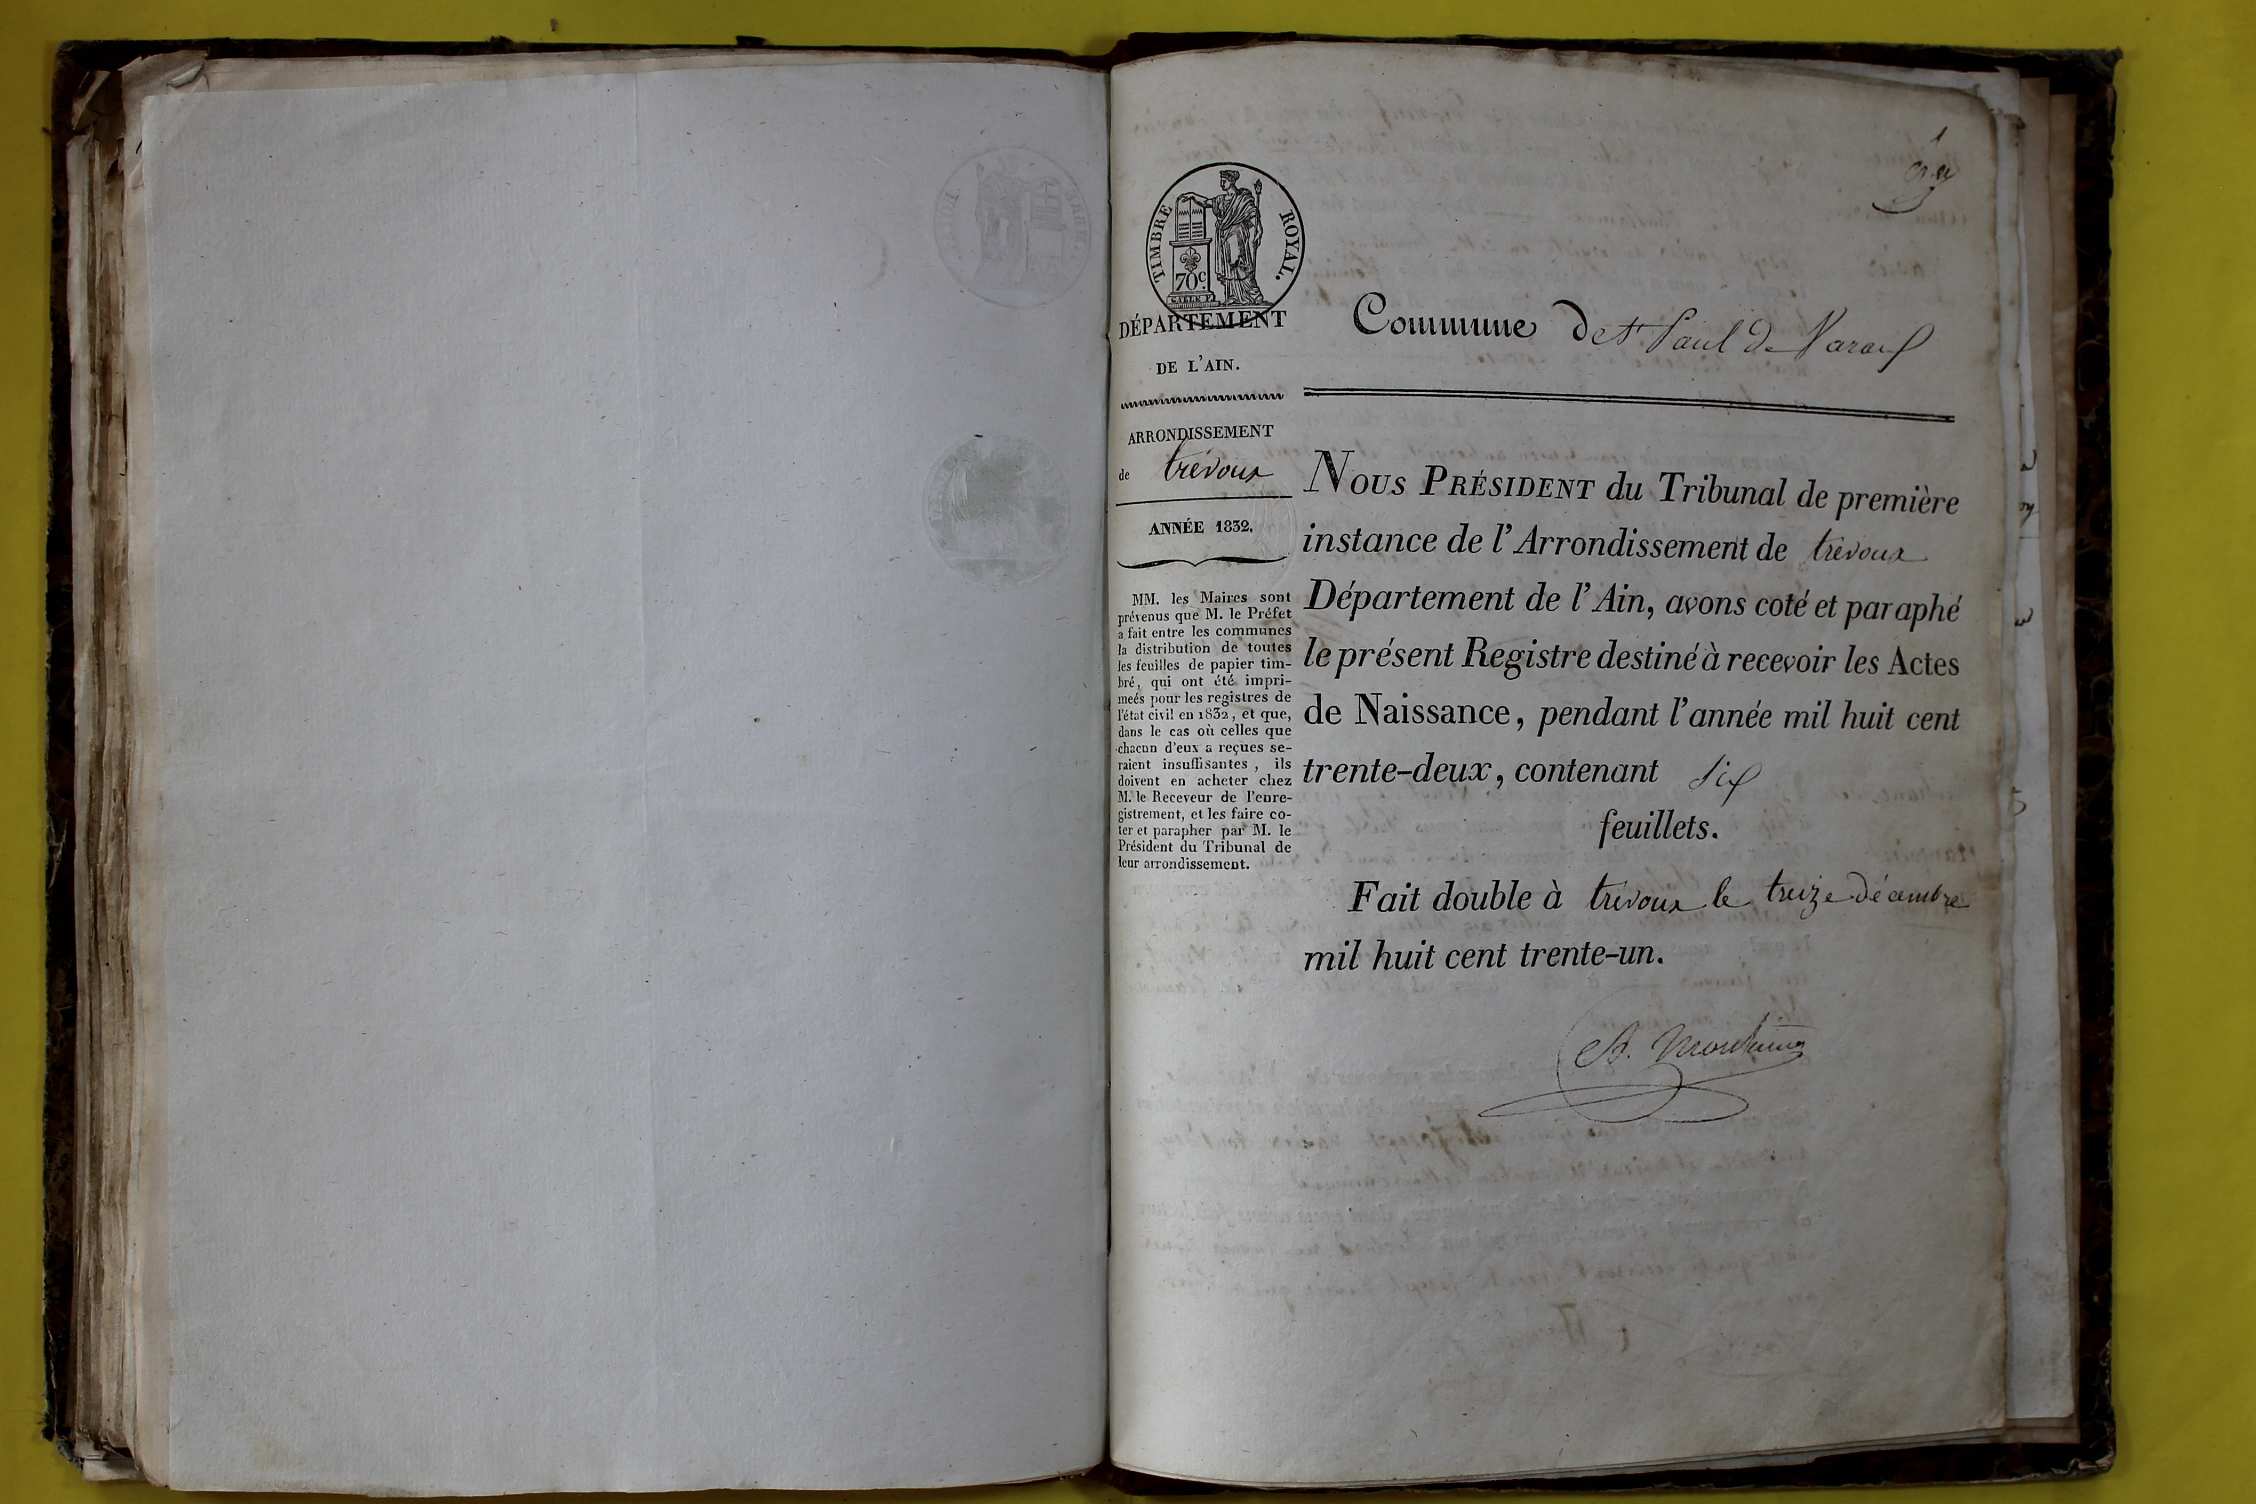 TIMBRE ROYAL.
70 c.
DÉPARTEMENT
DE L'AIN.
ARRONDISSEMENT
de trévoux
ANNÉE 1832.
MM. les Maires sont
prévenus que M. le Préfet
a fait entre les communes
la distribution de toutes
les feuilles de papier tim-
bré, qui ont été impri-
meés pour les registres de
l'état civil en 1832, et que,
dans le cas où celles que
chacun d'eux a reçues se-
raient insuffisantes, ils
doivent en acheter chez
M. le Receveur de l'enre-
gistrement, et les faire co-
ter et parapher par M. le
Président du Tribunal de
leur arrondissement.
Commune de St Paul de Varax
NOUS PRÉSIDENT du Tribunal de première
instance de l'Arrondissement de trévoux
Département de l'Ain, avons coté et paraphé
le présent Registre destiné à recevoir les Actes
de Naissance, pendant l'année mil huit cent
trente-deux, contenant six
feuillets.
Fait double à trévoux le treize décembre
mil huit cent trente-un.